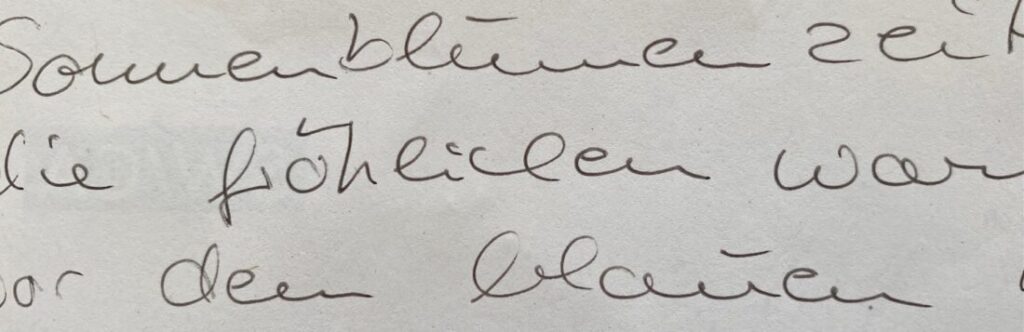 Sonnenblumen zeit
die fröhlichen war
vor dem blauen